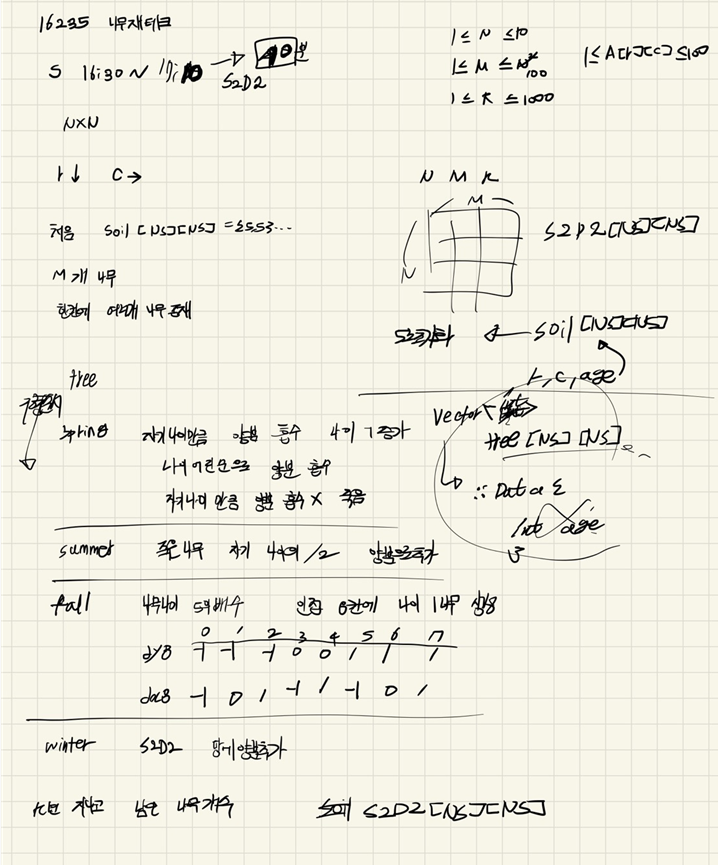 16235 나무재테크
S 16:30 ~ → 40분
S2D2
1 ≤ N ≤ 10
1 ≤ M ≤ N² 100
1 ≤ K ≤ 1000
1 ≤ A[r][c] ≤ 100
N×N
r ↓ C →
N M K
M
N
S2D2[NS][NS]
처음 Soil [NS][NS] = 5 5 5 ...
M개 나무
한칸에 여러개 나무 존재
← Soil [NS][NS]
r, c, age
tree
Vector<
tree [NS] [NS]
spring 자기 나이만큼 양분 흡수 나이 1 증가
나이 어린순으로 양분 흡수
자기나이 만큼 양분 흡수 X 죽음
: Data {
int age
}
summer 죽은 나무 자기 나이의 /2 양분으로 추가
fall 나무나이 5의 배수 인접 8칸에 나이 1 나무 생성
0 1 2 3 4 5 6 7
dy8 -1 -1 -1 0 0 1 1 1
dx8 -1 0 1 -1 1 -1 0 1
winter S2D2 땅에 양분추가
K년 지나고 남은 나무개수 S2D2[NS][NS]